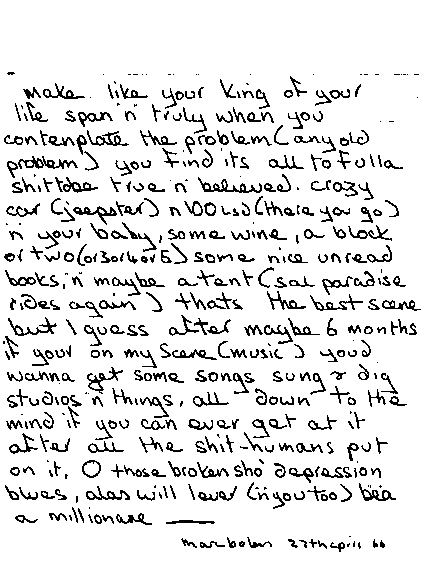 make like your king of your
life span 'n' truly when you
contemplate the problem (any old
problem) you find its all to fulla
shit tobe true 'n' believed. crazy
car (jeepster) n 100 Lsd (there you go)
'n your baby, some wine, a block
or two (or 3 or 4 or 5) some nice unread
books, 'n' maybe a tent (sal paradise
rides again) thats the best scene
but I guess after maybe 6 months
if your on my scene (music) youd
wanna get some songs sung & dig
studios 'n' things, all down to the
mind if you can ever get at it
after all the shit-humans put
on it, O those broken sho' depression
blues, alas will I ever ('n you too) be a
a millionare —
marc bolan 27th april 66